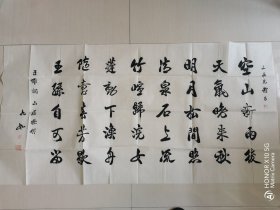 空山新雨後
天氣晚來秋
明月松間照
清泉石上流
竹喧歸浣女
蓮動下漁舟
隨意春芳歇
王孫自可留
王維詩山居秋暝
HONOR X10 5G
Matrix Camera